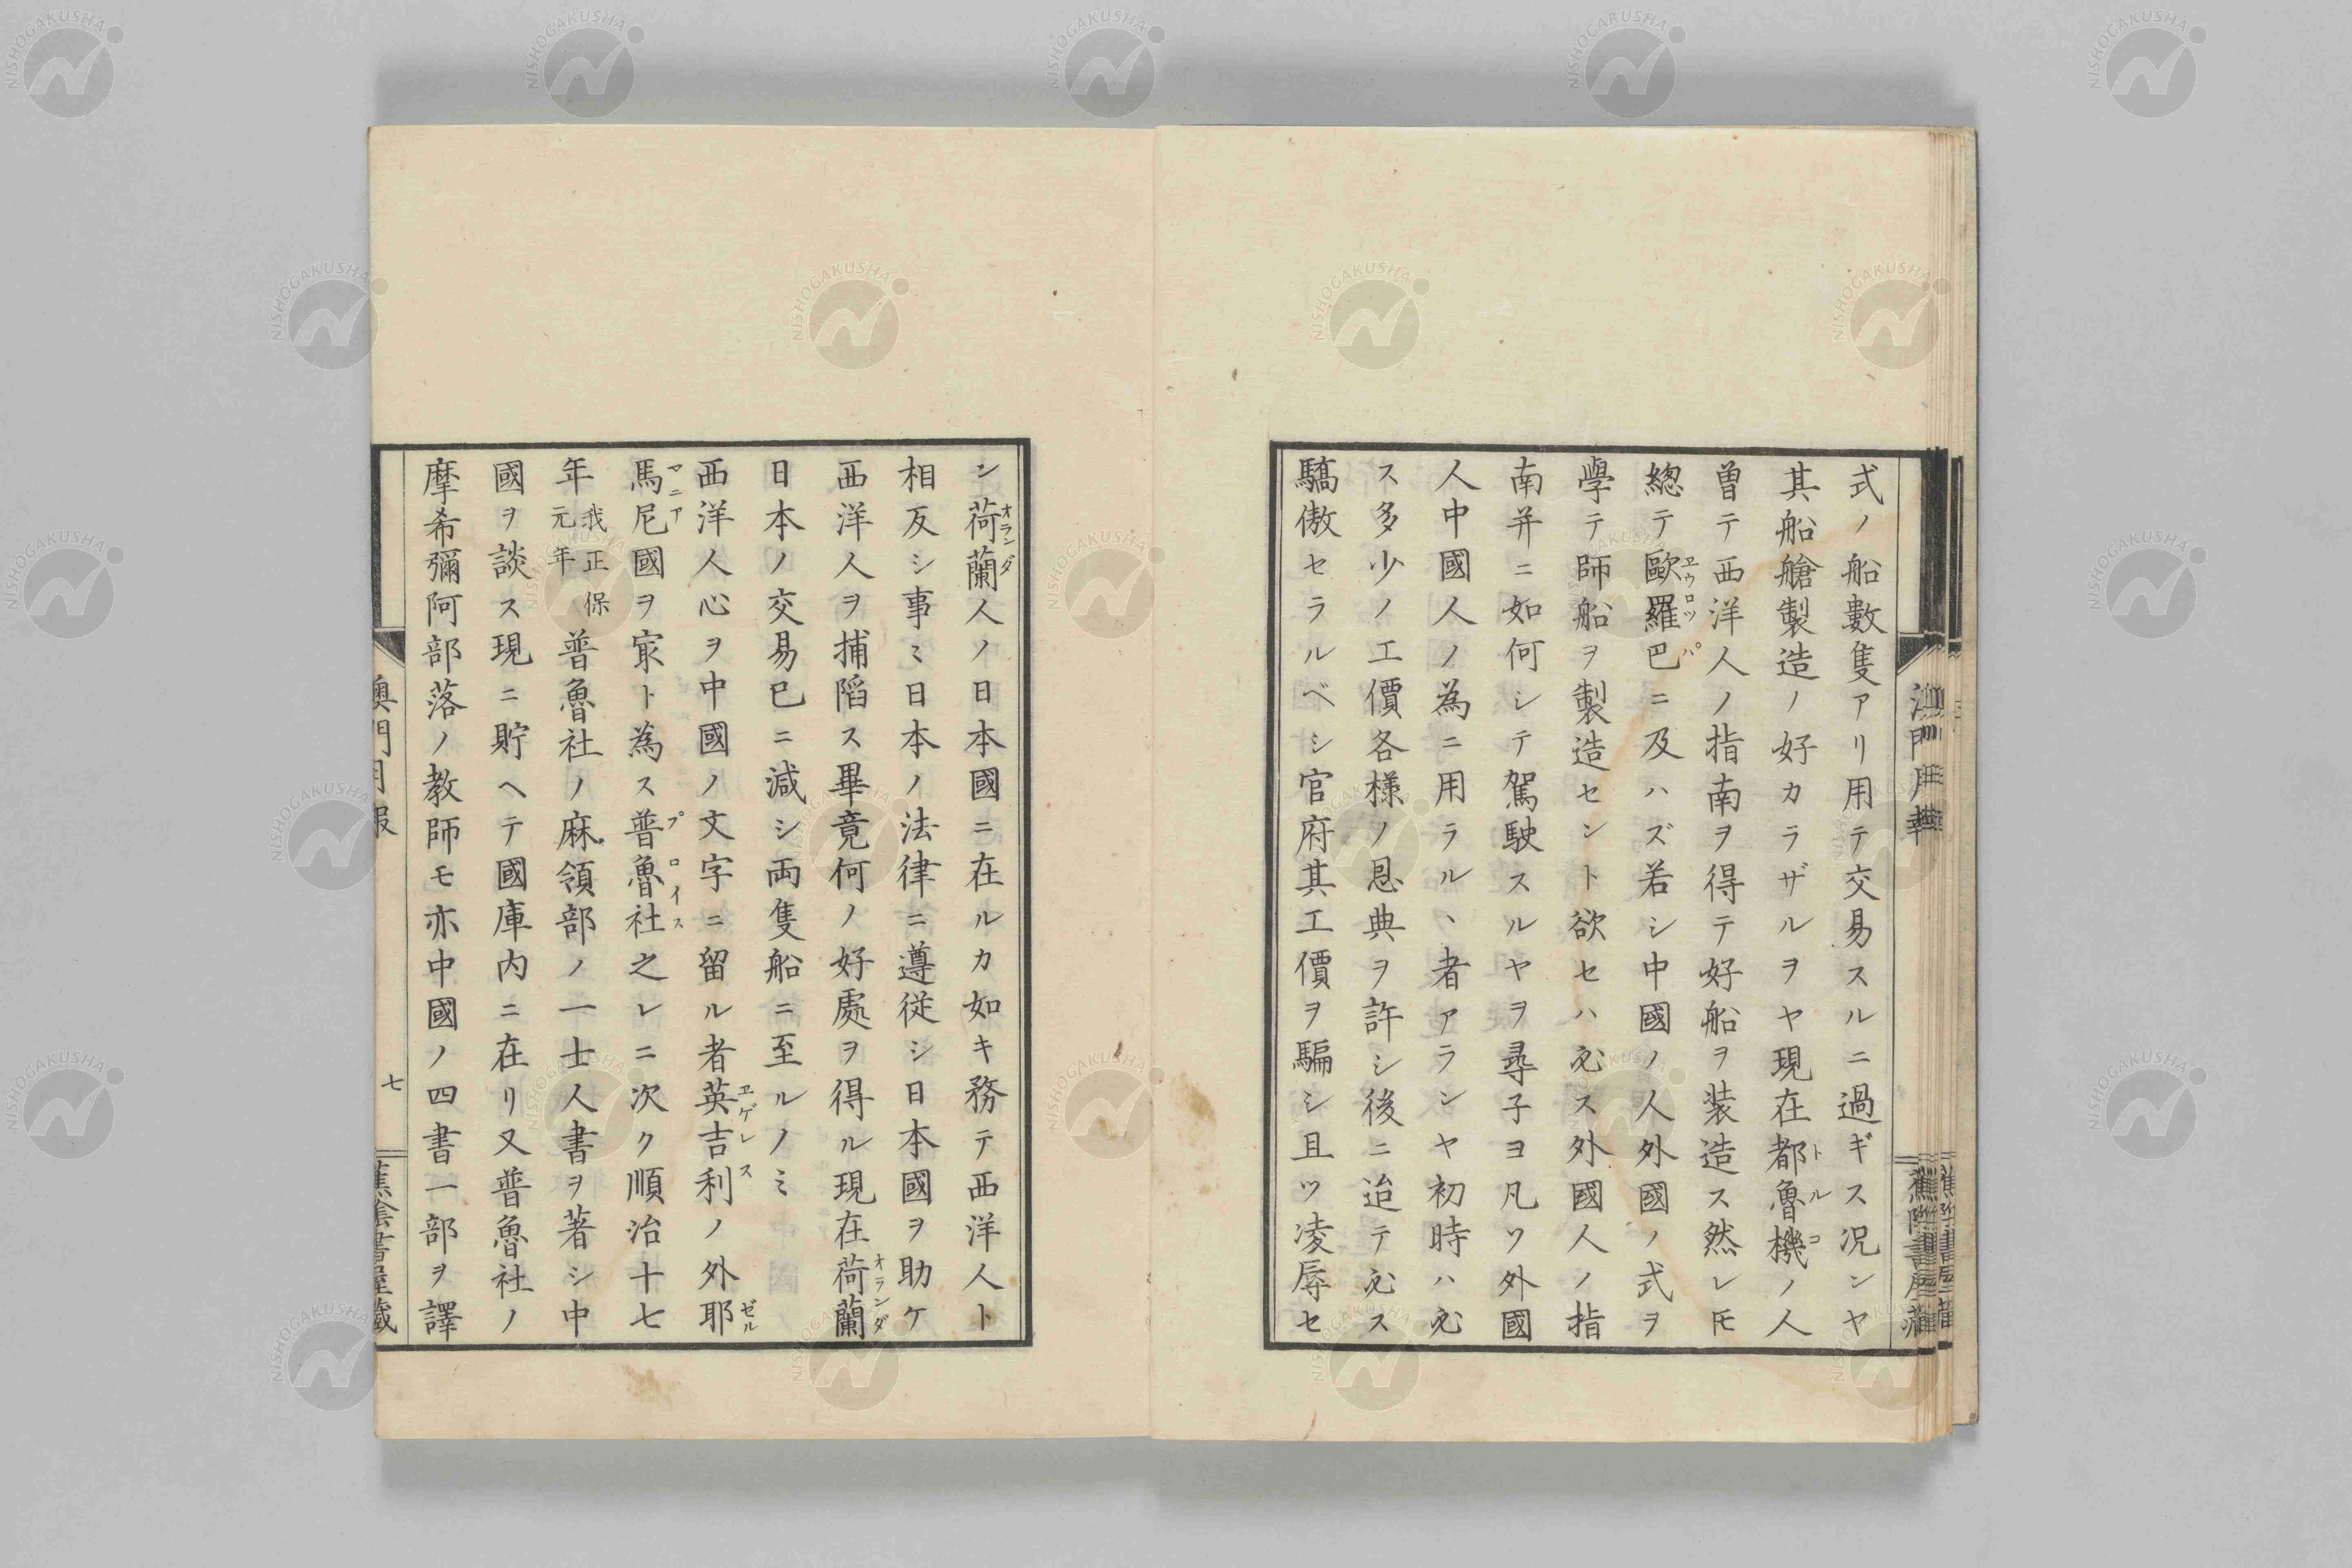 式ノ船數隻アリ用テ交易スルニ過ギス况ンヤ
其船艙製造ノ好カラザルヲヤ現在都魯機ノ人
トルコ
曽テ西洋人ノ指南ヲ得テ好船ヲ装造ス然レ𪜈
總テ歐羅巴ニ及ハズ若シ中國ノ人外國ノ式ヲ
ヱウロツパ
學テ師船ヲ製造セント欲セハ必ス外國人ノ指
南并ニ如何シテ駕駛スルヤヲ尋子ヨ凡ソ外國
人中國人ノ為ニ用ラルヽ者アランヤ初時ハ必
ス多少ノ工價各様ノ恩典ヲ許シ後ニ迨テ必ス
驕傲セラルベシ官府其工價ヲ騙シ且ツ凌辱セ
ン荷蘭人ノ日本國ニ在ルカ如キ務テ西洋人ト
オランダ
相反シ事〻日本ノ法律ニ遵従シ日本國ヲ助ケ
西洋人ヲ捕䧟ス畢竟何ノ好處ヲ得ル現在荷蘭
オランダ
日本ノ交易已ニ減シ両隻船ニ至ルノミ
西洋人心ヲ中國ノ文字ニ留ル者英吉利ノ外耶
ヱゲレス
ゼル
馬尼國ヲ㝡ト為ス普魯社之レニ次ク順治十七
マニア
プロイス
年
我正保
元年
普魯社ノ麻領部ノ一士人書ヲ著シ中
國ヲ談ス現ニ貯ヘテ國庫内ニ在リ又普魯社ノ
摩希彌阿部落ノ教師モ亦中國ノ四書一部ヲ譯
澳門月報
七
蕉陰書屋藏